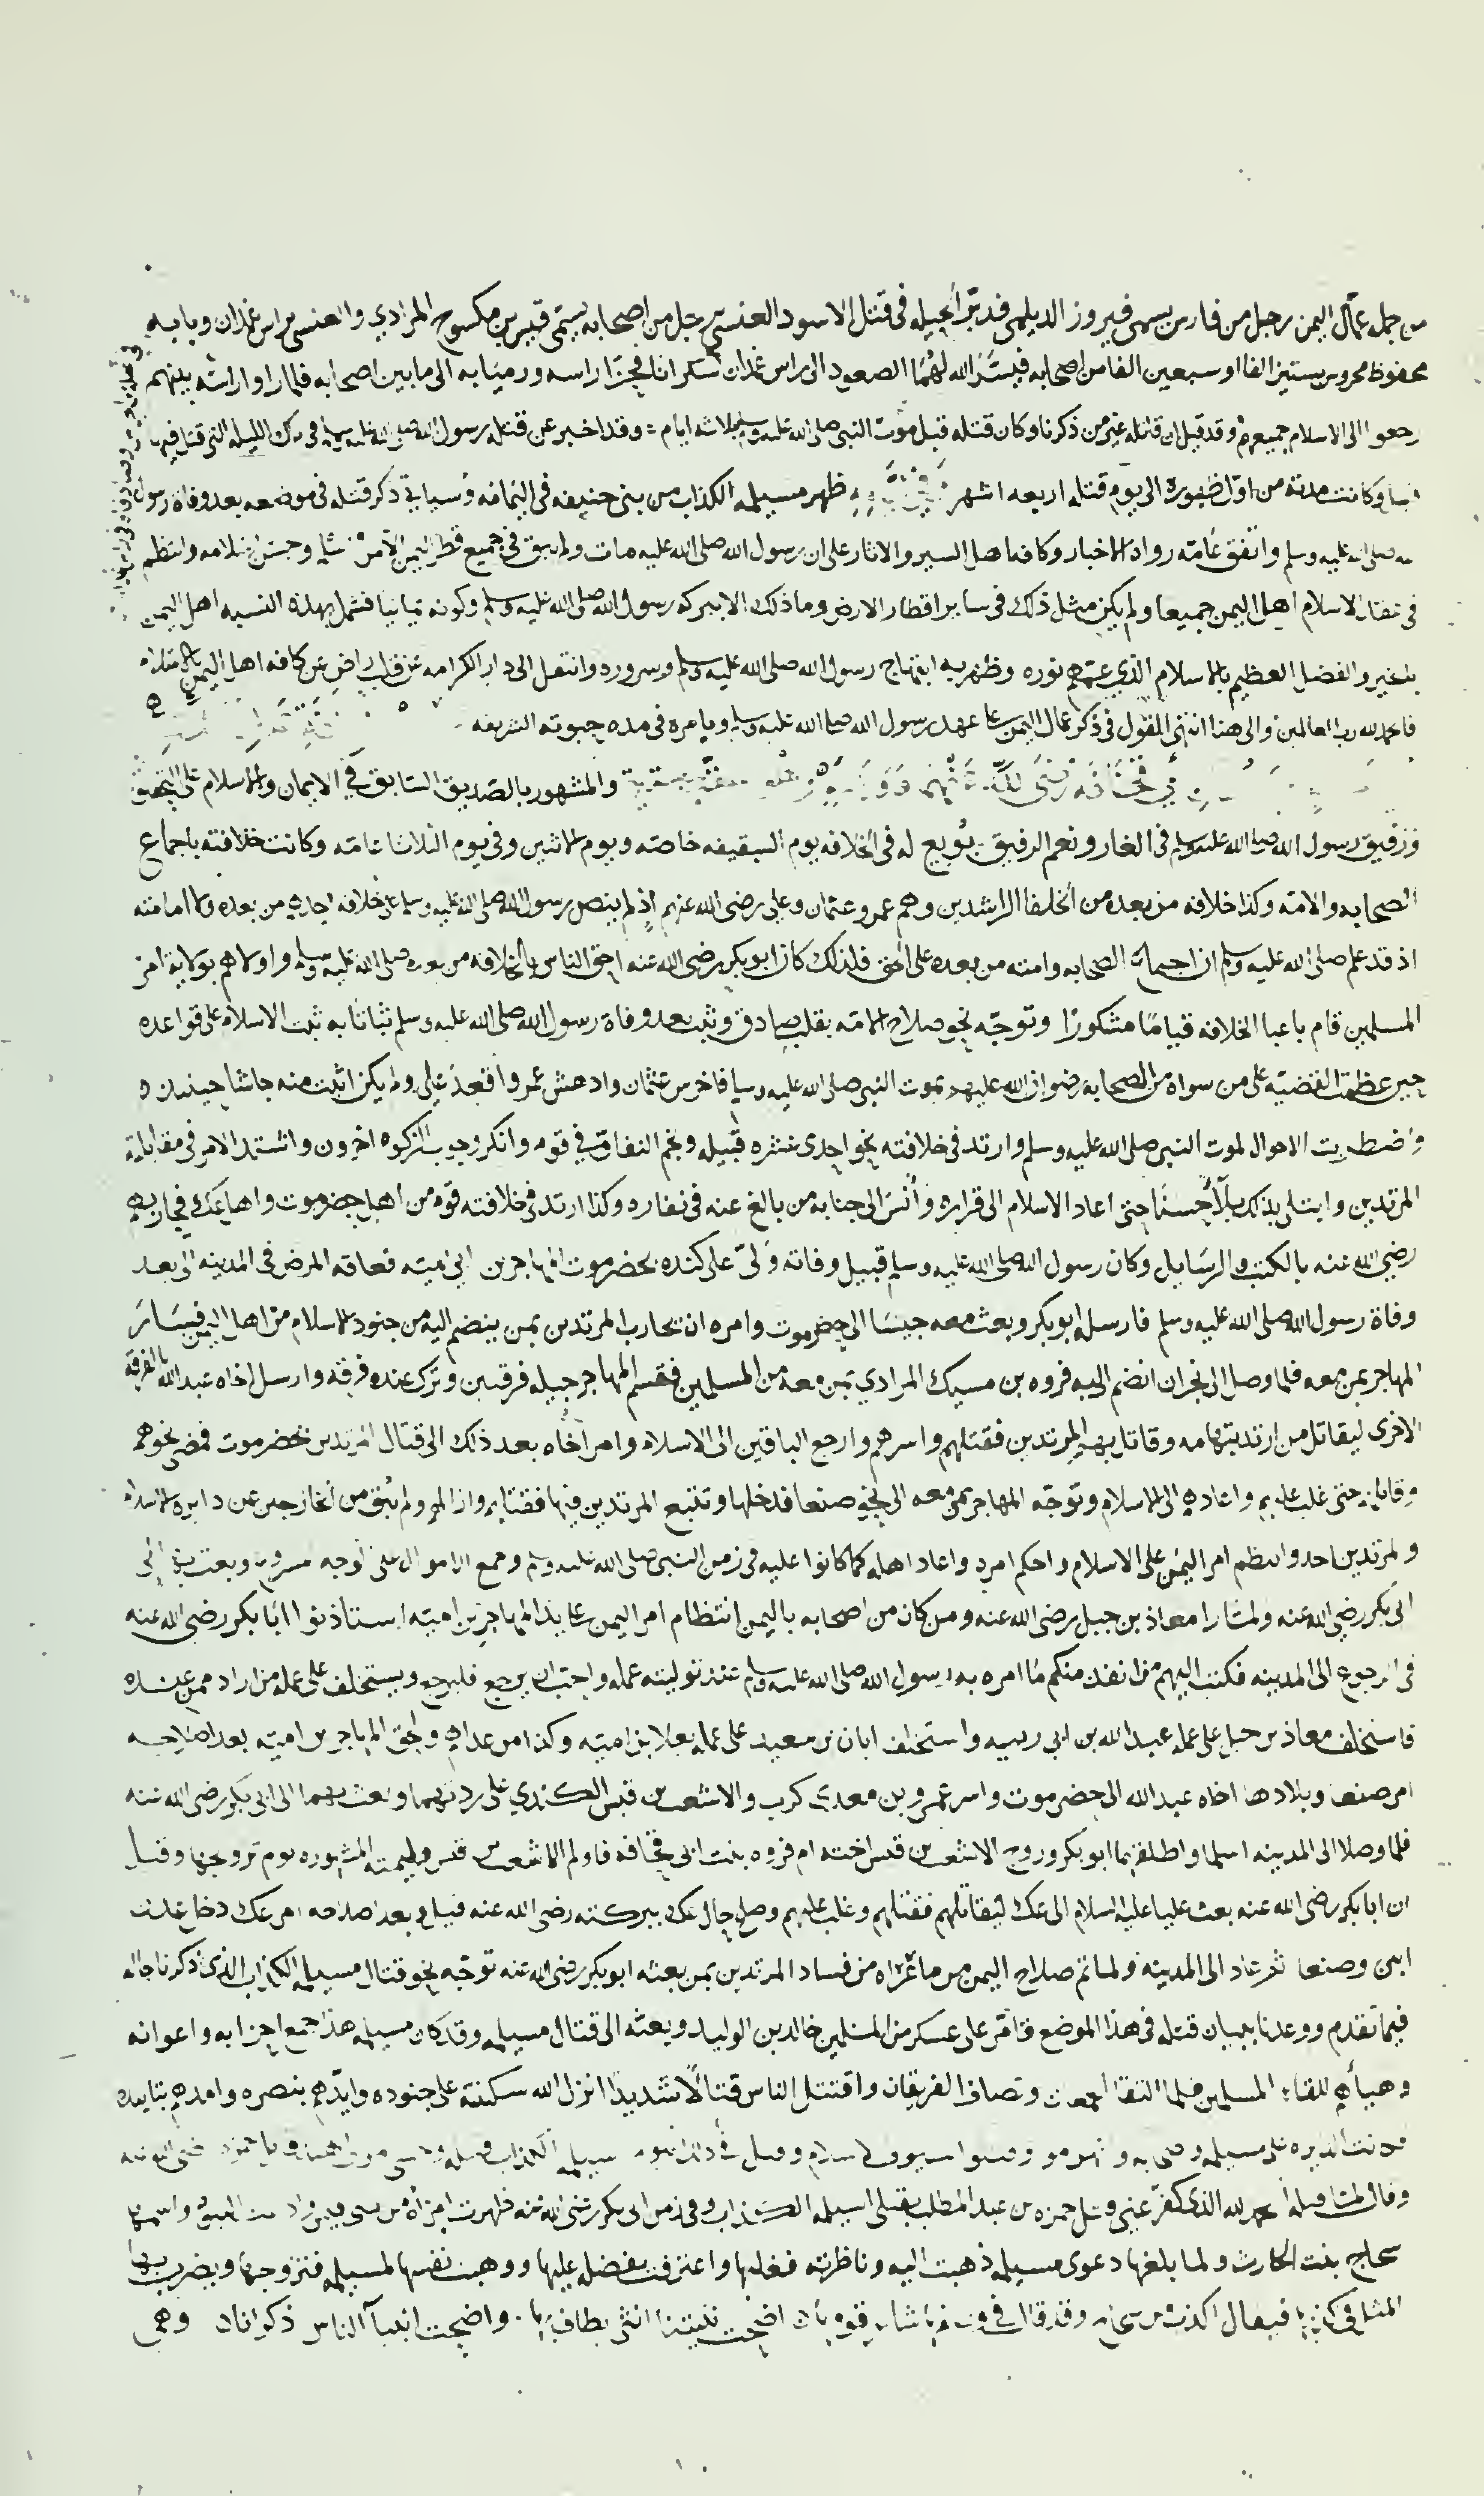 من جمله عمال اليمن رجل من فارس يسمى فيروز الديلمي فدبر الحيله في قتل الاسود العنسي رجل من اصحابه يسمى قيس بن مكسوح المرادي والعنسي براس غمدان وبابه
محفوظ محروس بستين الفا او سبعين الفا من اصحابه فيسر الله لهما الصعود الى راس غمدان فجزا راسه ورميا به الى ما بين اصحابه فلما راوا راسه بينهم
رجعوا الى الاسلام جميعهم وقد قيل ان قتله غير من ذكرنا وكان قتله قبل موت النبي صلى الله عليه وسلم بثلاثه ايام وقد اخبر عن قتله رسول الله صلى الله عليه وسلم في تلك الليله التي قتل فيها
وكانت مدته من اول ظهوره الى يوم قتله اربعه اشهر ظهر مسيلمه الكذاب من بني حنيفه في اليمامه وسياتي ذكر قتله في موضعه بعد وفاة رسول
الله صلى الله عليه وسلم واتفق عامه رواة الاخبار وكافه اهل السير والاثار على ان رسول الله صلى الله عليه مات ولم يبق في جميع قطر اليمن الا من وحسن اسلامه وانتظم
في الاسلام اهل اليمن جميعا ولم يكن مثل ذلك في ساير اقطار الارض وما ذلك الا ببركه رسول الله صلى الله عليه وسلم وكونه يمانيا فشمل بهذه النسبه اهل اليمن
والفضل العظيم بالاسلام الذي عمهم نوره وظهر به ابتهاج رسول الله صلى الله عليه وسلم وسروره وانتقل الى دار الكرامه عن قلب راض عن كافه اهل اليمن
فالحمد لله رب العالمين والى هذا انتهى القول في ذكر عمال اليمن على عهد رسول الله صلى الله عليه وسلم وبامره في مده حيوته الشريفه
والمشهور بالصديق السابق في الايمان والاسلام على التحقيق
ورفيق رسول الله صلى الله عليه وسلم في الغار ونعم الرفيق بويع له في الخلافه يوم السقيفه خاصه ويوم الاثنين وفي يوم الثلاثا عامه وكانت خلافته باجماع
الصحابه والامه وكذا خلافه من بعده من الخلفا الراشدين وهم عمر وعثمان وعلي رضي الله عنهم اذ لم ينص رسول الله صلى الله عليه وسلم على خلافه احد من بعده ولا امامته
اذ قد علم صلى الله عليه وسلم ان اجماع الصحابه وامته من بعده على الحق فلذلك كان ابو بكر رضي الله عنه احق الناس بالخلافه من بعده صلى الله عليه وسلم واولاهم بولاية امر
المسلمين قام باعبا الخلافه قياما مشكورا وتوجه نحو صلاح الامه بقلب صادق وثبت بعد وفاة رسول الله صلى الله عليه وسلم ثباتا به ثبت الاسلام على قواعده
حين عظمت القضيه على من سواه من الصحابه رضوان الله عليهم بموت النبي صلى الله عليه وسلم فاخرس عثمان وادهش عمر واقعد علي ولم يكن اثبت منه جاشا حينئذ
واضطربت الاحوال لموت النبي صلى الله عليه وسلم وارتد في خلافته نحو احدى عشره قبيله ونجم النفاق في قوم وانكر وجوب الزكوه اخرون واشتد الامر في مقابلة
المرتدين وابتلى بذلك بلآ حسنا حتى اعاد الاسلام الى قراره وأنس الى جنابه من بالغ عنه في نفاره وكذا ارتد في خلافته قوم من اهل حضرموت واهل عك فحاربهم
رضي الله عنه بالكتب والرسايل وكان رسول الله صلى الله عليه وسلم قبيل وفاته ولى على كنده بحضرموت المهاجر بن ابي اميه فعاقه المرض في المدينه الى بعد
وفاة رسول الله صلى الله عليه وسلم فارسله ابو بكر وبعث معه جيشا الى حضرموت وامره ان يحارب المرتدين بمن ينضم اليه من جنود الاسلام من اهل اليمن فسار
المهاجر بمن معه فلما وصل الى نجران انضم اليه فروه بن مسيك المرادي بمن معه من المسلمين فقسم المهاجر جيله فرقتين وترك عنده فرقه وارسل اخاه عبد الله بالفرقه
الاخرى ليقاتل من ارتد بتهامه وقاتل بهم المرتدين فقتلهم واسرهم وارجع الباقين الى الاسلام وامر اخاه بعد ذلك الى قتال المرتدين بحضرموت فمضى نحوهم
وقاتلهم حتى غلب عليهم واعادهم الى الاسلام وتوجه المهاجر بمن معه الى نحو صنعا فدخلها وتتبع المرتدين فيها فقتلهم ولم يبق من الخارجين عن دايره الاسلام
والمرتدين احد وانتظم امر اليمن على الاسلام واحكم امره واعاد اهله كما كانوا عليه في زمن النبي صلى الله عليه وسلم وجمع الاموال على الوجه وبعث بها الى
ابي بكر رضي الله عنه ولما راى معاذ بن جبل رضي الله عنه ومن كان من اصحابه باليمن انتظام امر اليمن على يد المهاجر بن اميه استاذنوا ابا بكر رضي الله عنه
في الرجوع الى المدينه فكتب اليهم من انفذ منكم ما امره به رسول الله صلى الله عليه وسلم عند توليته عمله واحب ان يرجع فليرجع ويستخلف على عمله من اراد ممن عنده
فاستخلف معاذ بن جبل على عمله عبد الله بن ابي ربيعه واستخلف ابان بن سعيد على عمله يعلا بن اميه وكذا من عداهم ولحق المهاجر بن اميه بعد اصلاحه
امر صنعا وبلادها اخاه عبد الله الى حضرموت واسر عمرو بن معدي كرب والاشعث بن قيس الكندي على ردتهما وبعث بهما الى ابي بكر رضي الله عنه
فلما وصلا الى المدينه اسلما واطلقهما ابو بكر وزوج الاشعث بن قيس اخته ام فروه بنت ابي قحافه فاولم الاشعث بن قيس وليمته المشهوره يوم تزوجها وقيل
ان ابا بكر رضي الله عنه بعث عليا عليه السلام الى عك ليقاتلهم فقتلهم وغلب عليهم وصلح حال عك ببركته رضي الله عنه قيل وبعد اصلاحه امر عك دخل عدن
ابين وصنعا ثم عاد الى المدينه ولما تم صلاح اليمن من ما عراه من فساد المرتدين بمن بعثه ابو بكر رضي الله عنه توجه نحو قتال مسيلمه الكذاب الذي ذكرنا حاله
فيما تقدم ووعدنا ببيان قتله في هذا الموضع فامر على عسكر من المسلمين خالد بن الوليد وبعثه الى قتال مسيلمه وقد كان مسيلمه هذا جمع احزابه واعوانه
وهيأهم للقاء المسلمين فلما التقا الجمعان وتصاف الفريقان واقتتل الناس قتالا شديدا انزل الله سكينته على جنوده وايدهم بنصره وامدهم بتاييده
على مسيلمه مسيلمه الكذاب
وقال لما قتله الحمد لله الذي كفر عني قتل حمزه بن عبد المطلب بقتلي لمسيلمه الكذاب وفي زمن ابي بكر رضي الله عنه ظهرت امرأة من بني النبوة واسمها
سجاح بنت الحارث ولما بلغها دعوى مسيلمه ذهبت اليه وناظرته فغلبها واعترفت بفضله عليها ووهبت نفسها لمسيلمه فتزوجها ويضرب بها
المثل في فيقال اكذب من سجاح وقد قال اضحت نبيتنا انثى يطاف بها واضحت انبيآ الناس ذكرانا وهي